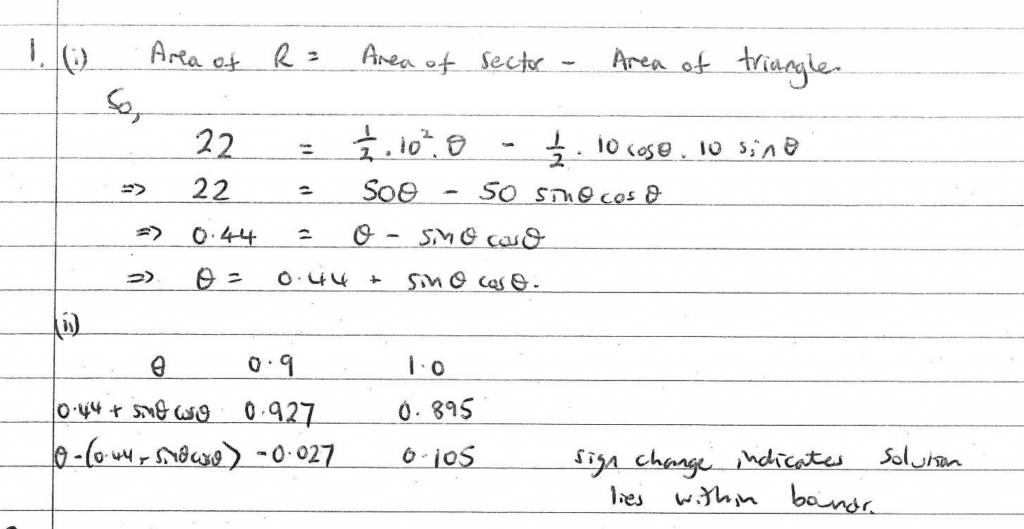 1. (i) Area of R = Area of sector - Area of triangle.
So,
22 = 1/2 . 10². θ - 1/2 . 10 cosθ . 10 sinθ
=> 22 = 50θ - 50 sinθ cosθ
=> 0.44 = θ - sinθ cosθ
=> θ = 0.44 + sinθ cosθ.
(ii)
θ 0.9 1.0
0.44 + sinθ cosθ 0.927 0.895
θ-(0.44 + sinθcosθ) -0.027 0.105 sign change indicates solution
lies within bounds.